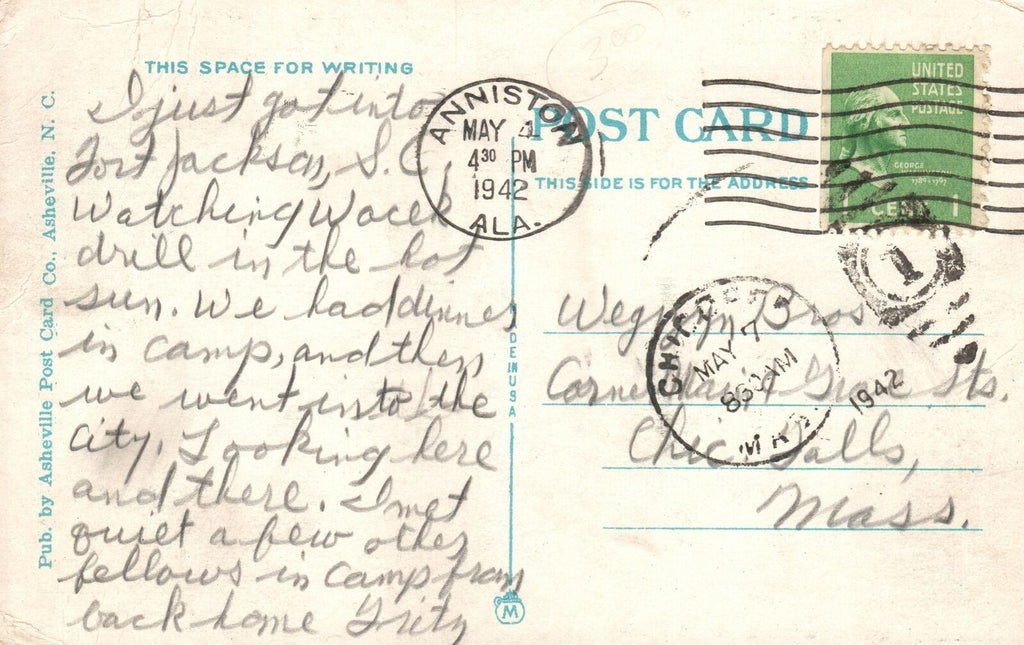 THIS SPACE FOR WRITING
I just got into
Fort Jackson, S.C.
Watching
drill in the hot
sun. We had dinner
in camp, and then
we went into the
city. Looking here
and there. I met
quiet a few other
fellows in camp from
back home Fritz
Pub. by Asheville Post Card Co., Asheville, N. C.
ANNISTON
MAY 4
4 30 PM
1942
ALA.
POST CARD
THIS SIDE IS FOR THE ADDRESS
UNITED
STATES
POSTAGE
GEORGE
1789-1797
1 CENT 1
1
MADE IN USA
M
MAY 7
1942
Bros
Corner & Grove Sts.
Chic. Falls,
Mass.
3.00